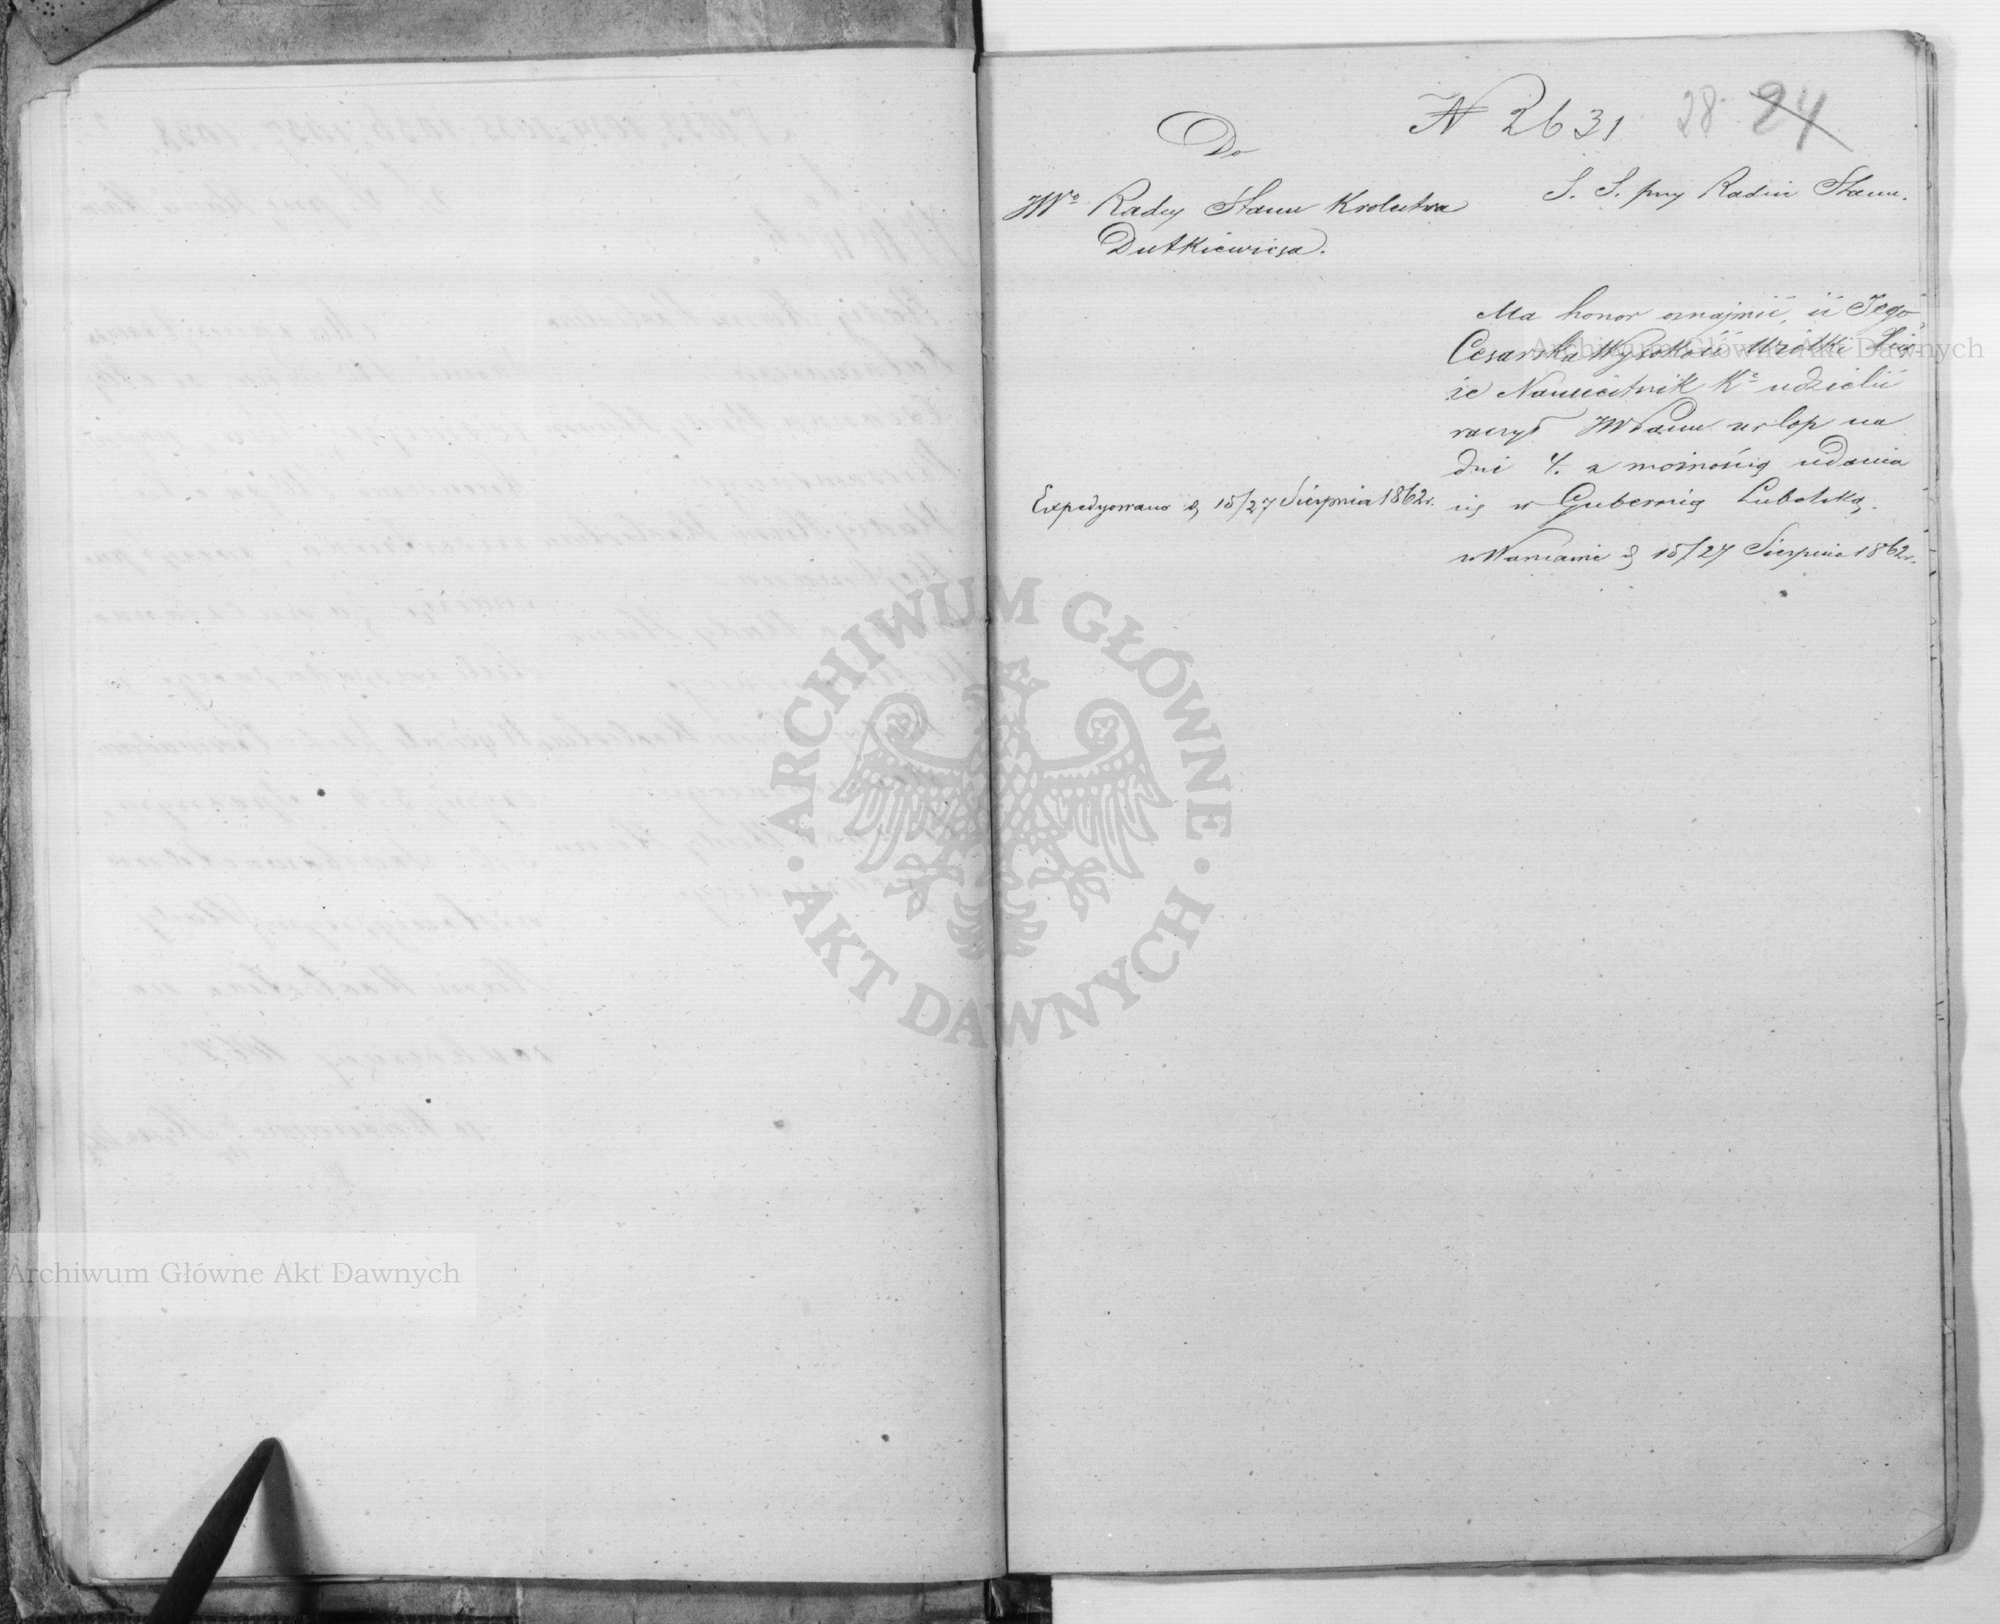 N 2631 28 24
Do
JWo Radcy Stanu Królestwa
Dutkiewicza.
S. S. przy Radzie Stanu.
Ma honor oznajmić, iż Jego
Cesarska Wysokość Wielki Xią-
że Namiestnik Kr udzielić
raczył JWPanu urlop na
dni 4. z możnością udania
się w Gubernią Lubelską.
w Warszawie d. 15/27 Sierpnia 1862 r.
Expedyowano d. 15/27 Sierpnia 1862 r.
ARCHIWUM GŁÓWNE AKT DAWNYCH
Archiwum Główne Akt Dawnych
Archiwum Główne Akt Dawnych